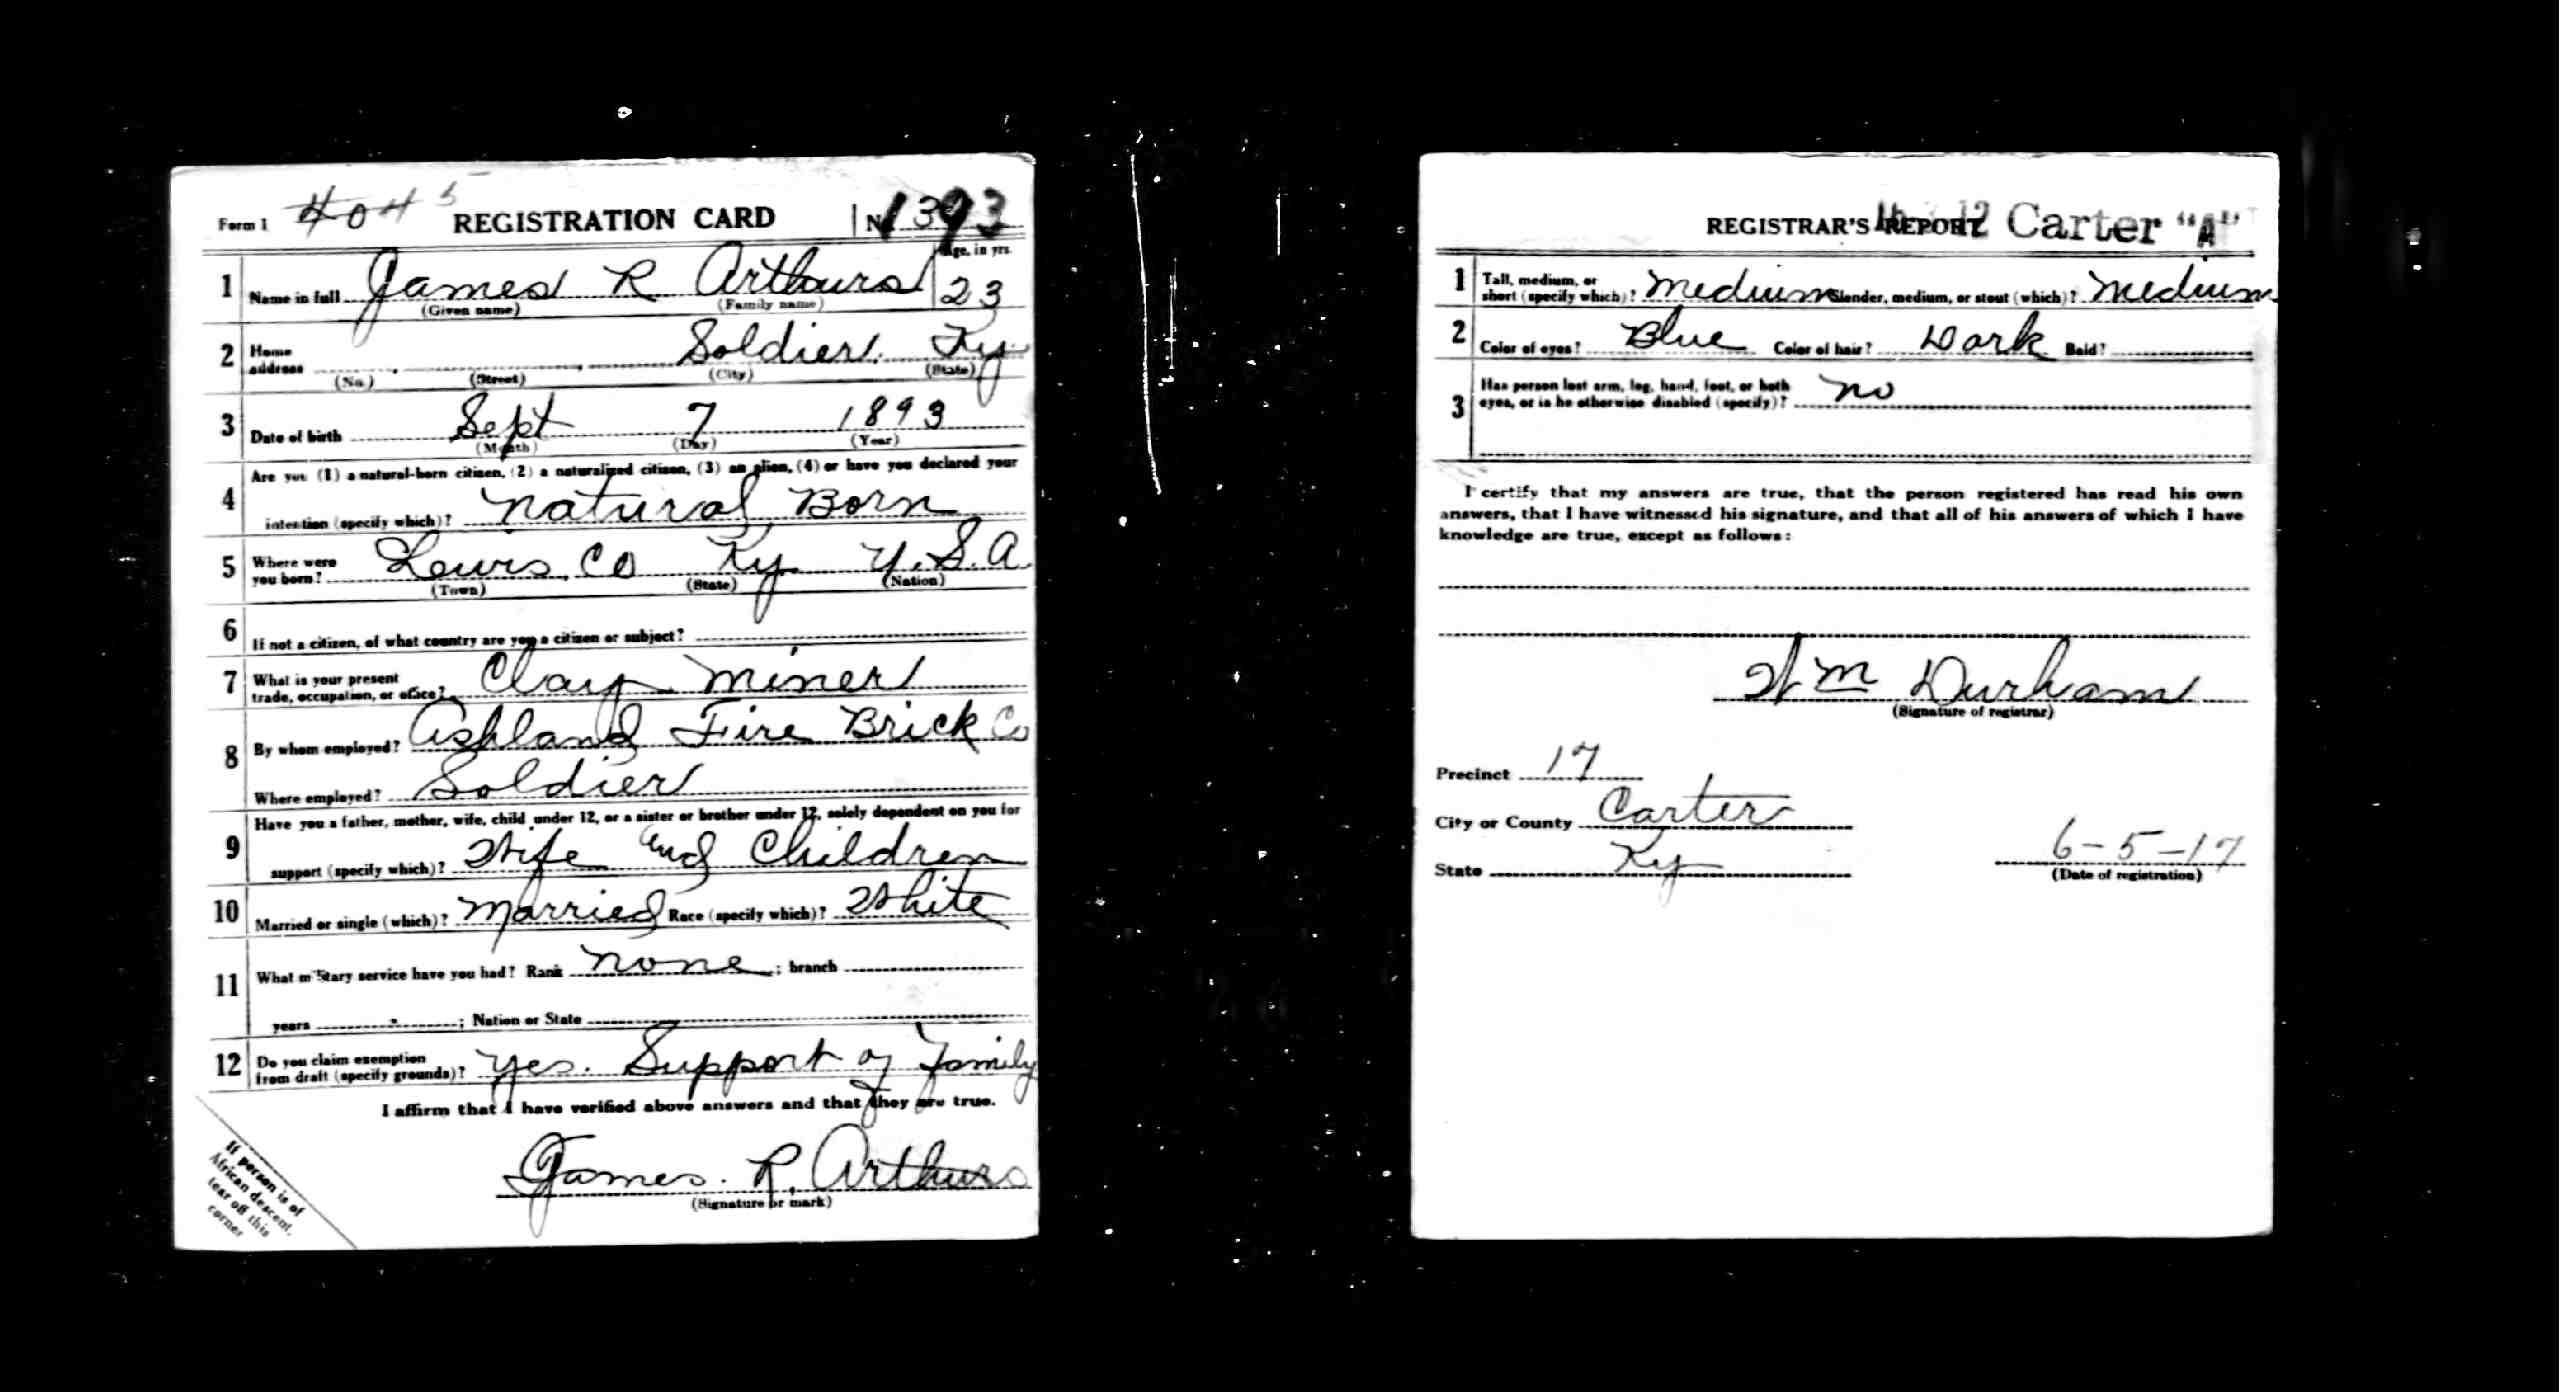 Form 1 REGISTRATION CARD No 1393
Age, in yrs.
1 Name in full James R Arthurs 23
(Given name) (Family name)
2 Home address Soldier Ky
(No.) (Street) (City) (State)
3 Date of birth Sept 7 1893
(Month) (Day) (Year)
Are you (1) a natural-born citizen, (2) a naturalized citizen, (3) an alien, (4) or have you declared your
4 intention (specify which)? Natural Born
5 Where were you born? Lewis Co Ky U.S.A
(Town) (State) (Nation)
6 If not a citizen, of what country are you a citizen or subject?
7 What is your present trade, occupation, or office? Clay Miner
8 By whom employed? Ashland Fire Brick Co
Where employed? Soldier
Have you a father, mother, wife, child under 12, or a sister or brother under 12, solely dependent on you for
9 support (specify which)? Wife and Children
10 Married or single (which)? Married Race (specify which)? White
11 What military service have you had? Rank none ; branch
years ; Nation or State
12 Do you claim exemption from draft (specify grounds)? Yes. Support of Family
I affirm that I have verified above answers and that they are true.
James. R. Arthurs
(Signature or mark)
If person is of
African descent,
tear off this
corner
REGISTRAR'S REPORT 12 Carter "A"
1 Tall, medium, or short (specify which)? Medium Slender, medium, or stout (which)? Medium
2 Color of eyes? Blue Color of hair? Dark Bald?
3 Has person lost arm, leg, hand, foot, or both
eyes, or is he otherwise disabled (specify)? No
I certify that my answers are true, that the person registered has read his own
answers, that I have witnessed his signature, and that all of his answers of which I have
knowledge are true, except as follows:
Wm Durham
(Signature of registrar)
Precinct 17
City or County Carter
State Ky
6-5-17
(Date of registration)